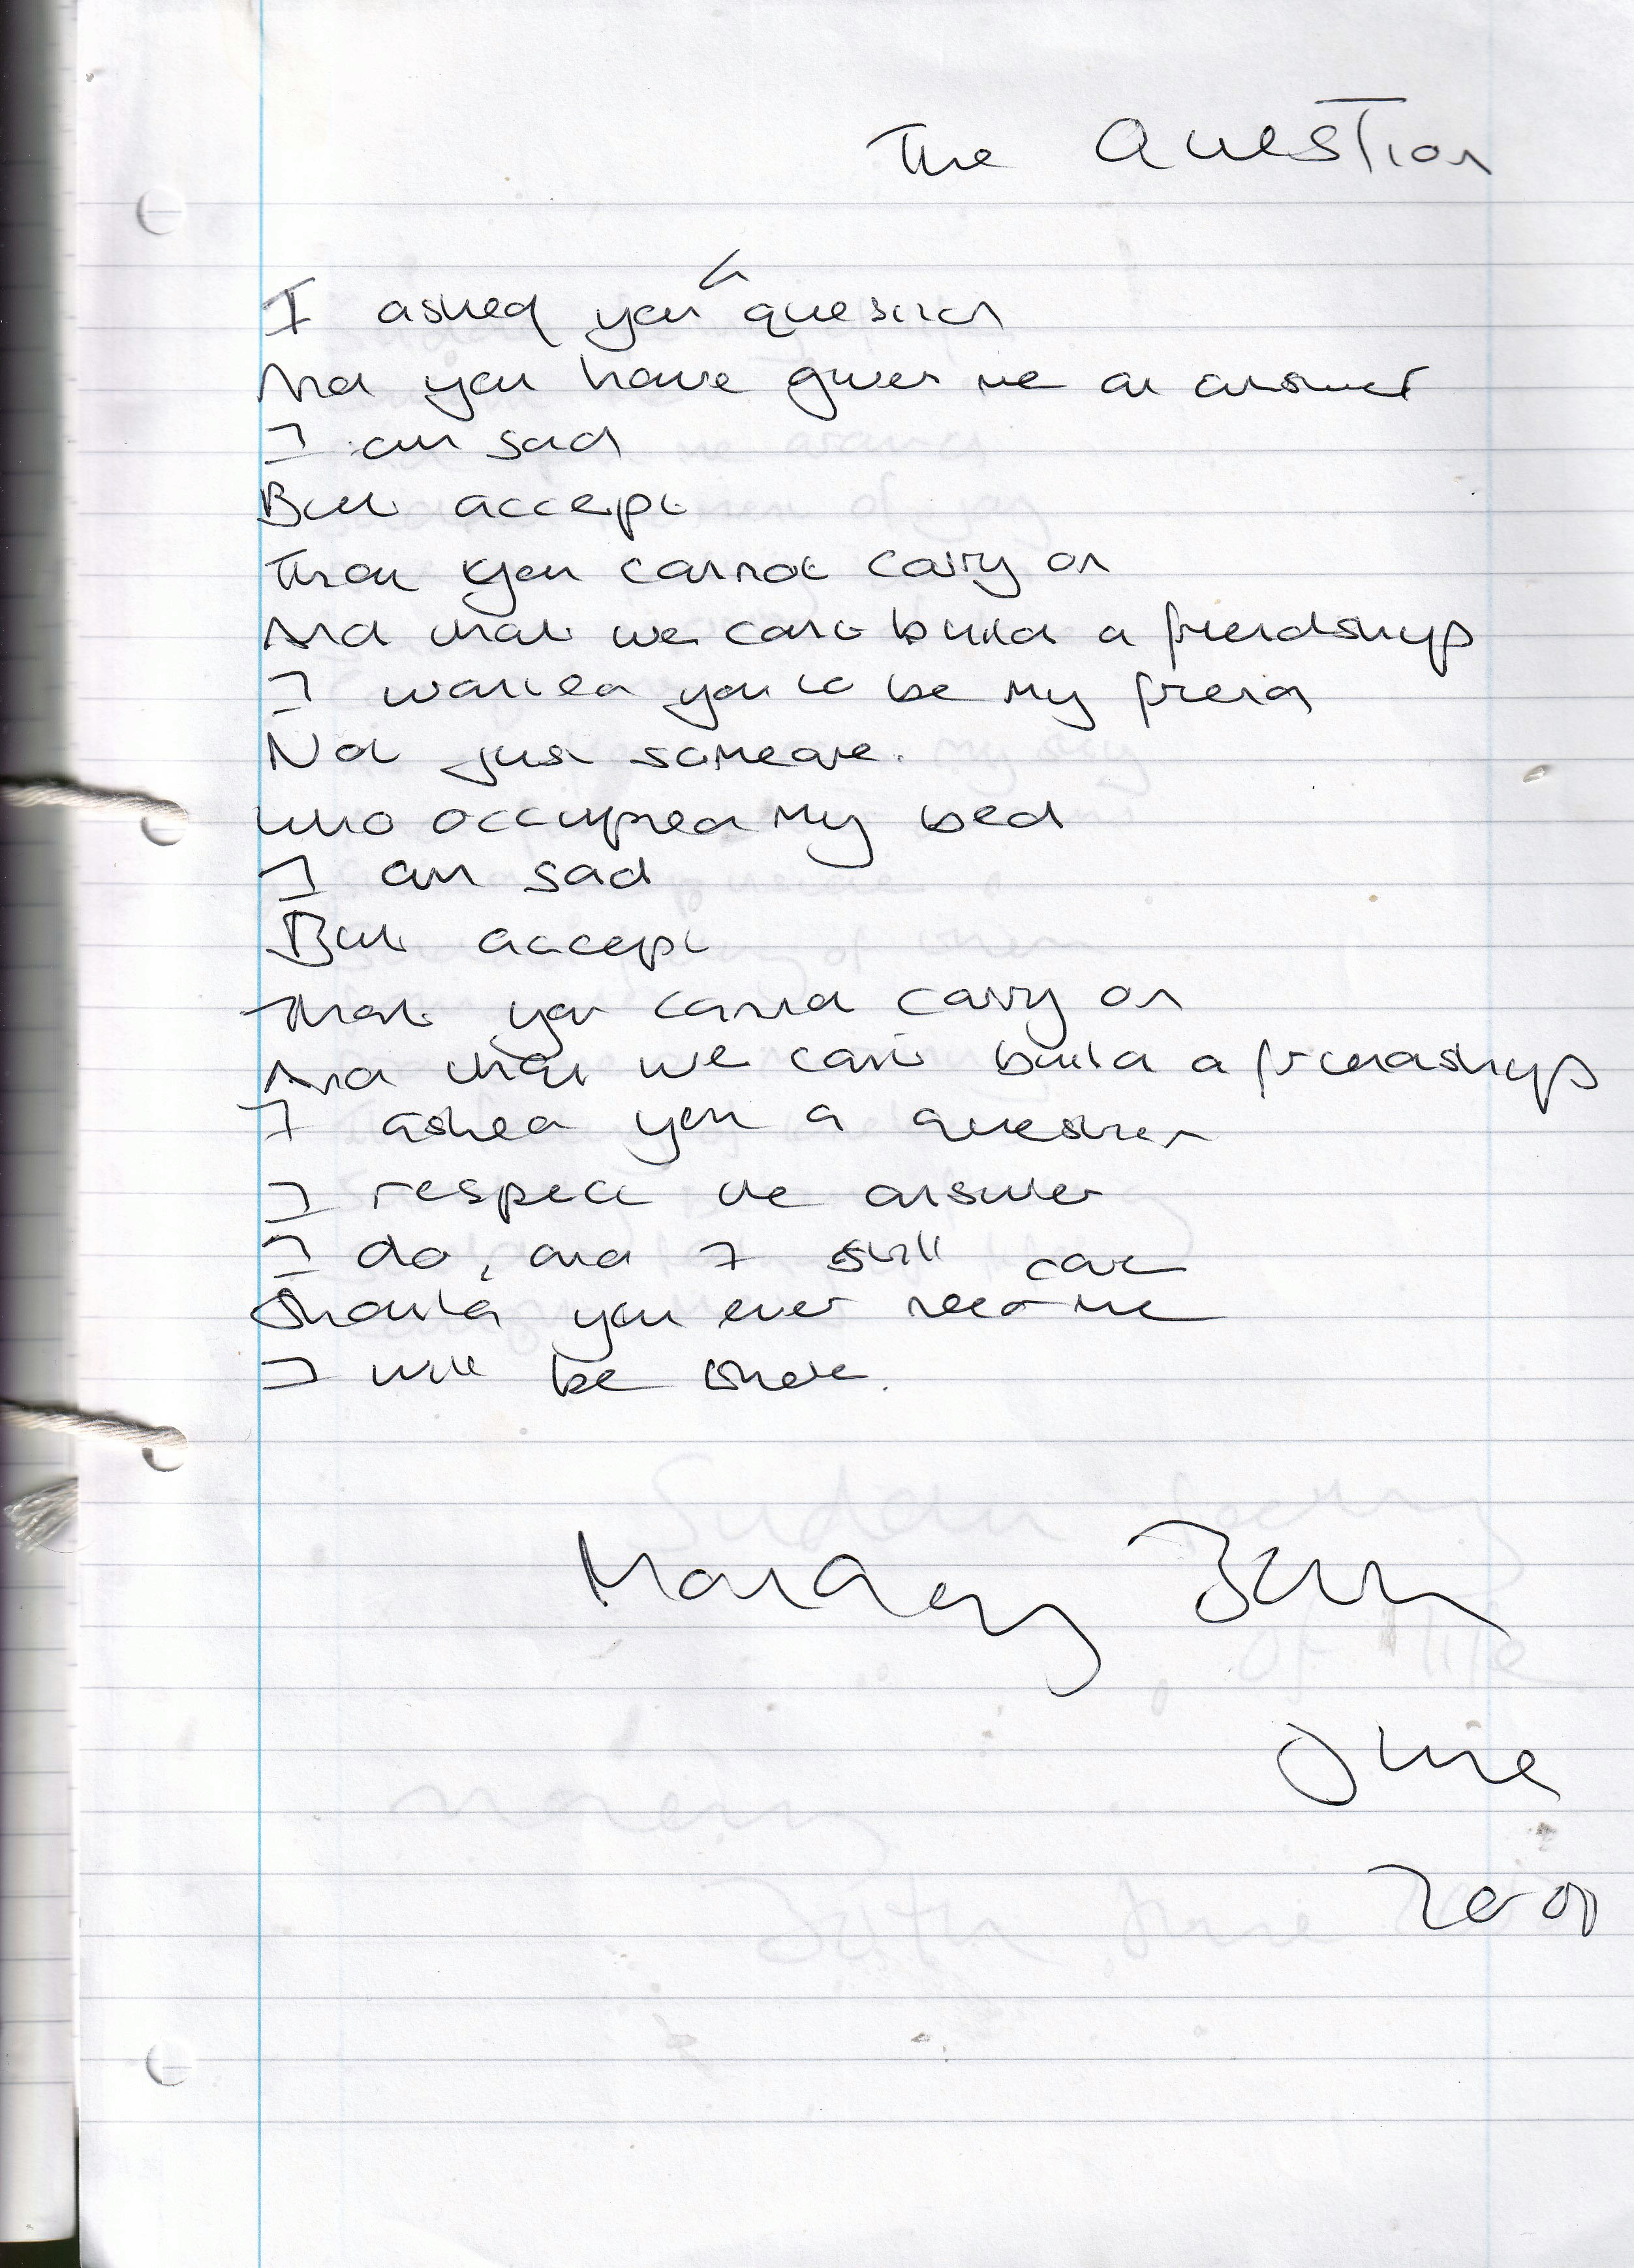 The Question
I asked you a question
And you have given me an answer
I am sad
But accept
That you cannot carry on
And that we can't build a friendship
I wanted you to be my friend
Not just someone
who occupied my bed
I am sad
But accept
That you cannot carry on
And that we can't build a friendship
I asked you a question
I respect the answer
I do, and I still care
Should you ever need me
I will be there.
Monday
June